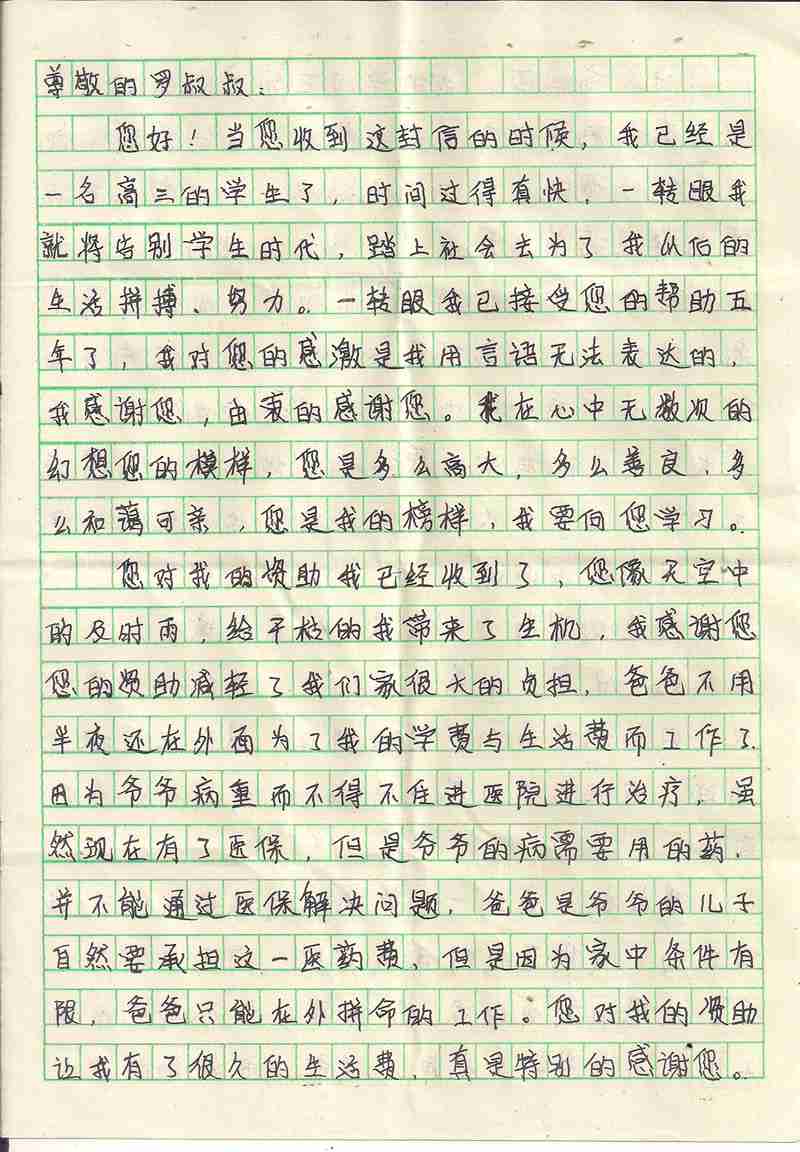 尊敬的罗叔叔：
您好！当您收到这封信的时候，我已经是
一名高三的学生了，时间过得真快，一转眼我
就将告别学生时代，踏上社会去为了我以后的
生活拼搏、努力。一转眼我已接受您的帮助五
年了，我对您的感激是我用言语无法表达的，
我感谢您，由衷的感谢您。我在心中无数次的
幻想您的模样，您是多么高大，多么善良，多
么和蔼可亲，您是我的榜样，我要向您学习。
您对我的资助我已经收到了，您像天空中
的及时雨，给干枯的我带来了生机，我感谢您
您的资助减轻了我们家很大的负担，爸爸不用
半夜还在外面为了我的学费与生活费而工作了
因为爷爷病重而不得不住进医院进行治疗，虽
然现在有了医保，但是爷爷的病需要用的药，
并不能通过医保解决问题，爸爸是爷爷的儿子
自然要承担这一医药费，但是因为家中条件有
限，爸爸只能在外拼命的工作。您对我的资助
让我有了很久的生活费，真是特别的感谢您。